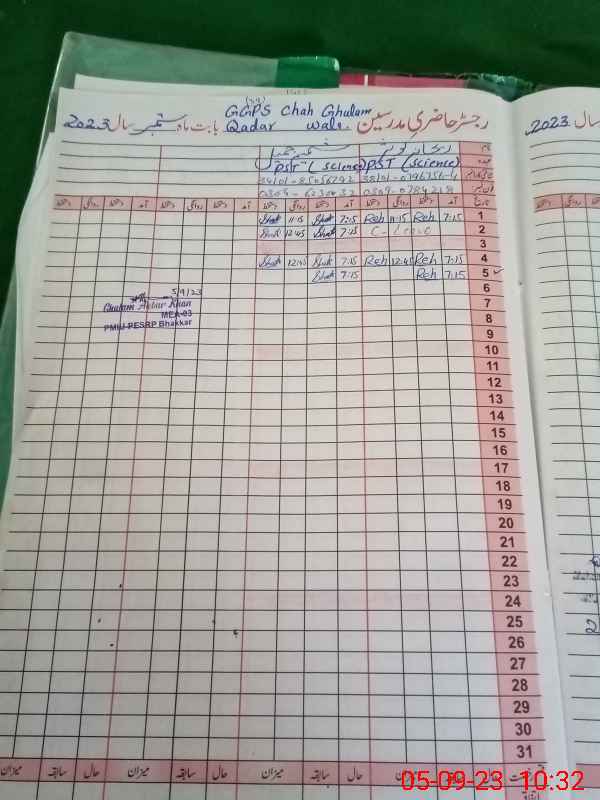 (29)
GGPS Chah Ghulam
رجسٹر حاضری مدرسین Qadar wala. بابت ماہ ستمبر سال 2023
نام
عہدہ PST (science) PST (science)
0309-0784218
تاریخ دستخط آمد دستخط روانگی دستخط آمد دستخط روانگی دستخط آمد دستخط روانگی دستخط آمد دستخط روانگی
1 7:15 Reh 11:15 Reh 7:15 Shak 11:15 Shak
2 7:15 Shak 12:45 Shak
3
4 7:15 Reh 12:45 Reh 7:15 Shak 12:45 Shak
5 7:15 Reh 7:15 Shak
6
7
8
9
10
11
12
13
14
15
16
17
18
19
20
21
22
23
24
25
26
27
28
29
30
31
5/9/23
Ghulam Akbar Khan
MEA-03
PMIU-PESRP Bhakkar
میزان سابقہ حال میزان سابقہ حال میزان سابقہ حال میزان
سال 2023
05-09-23 10:32